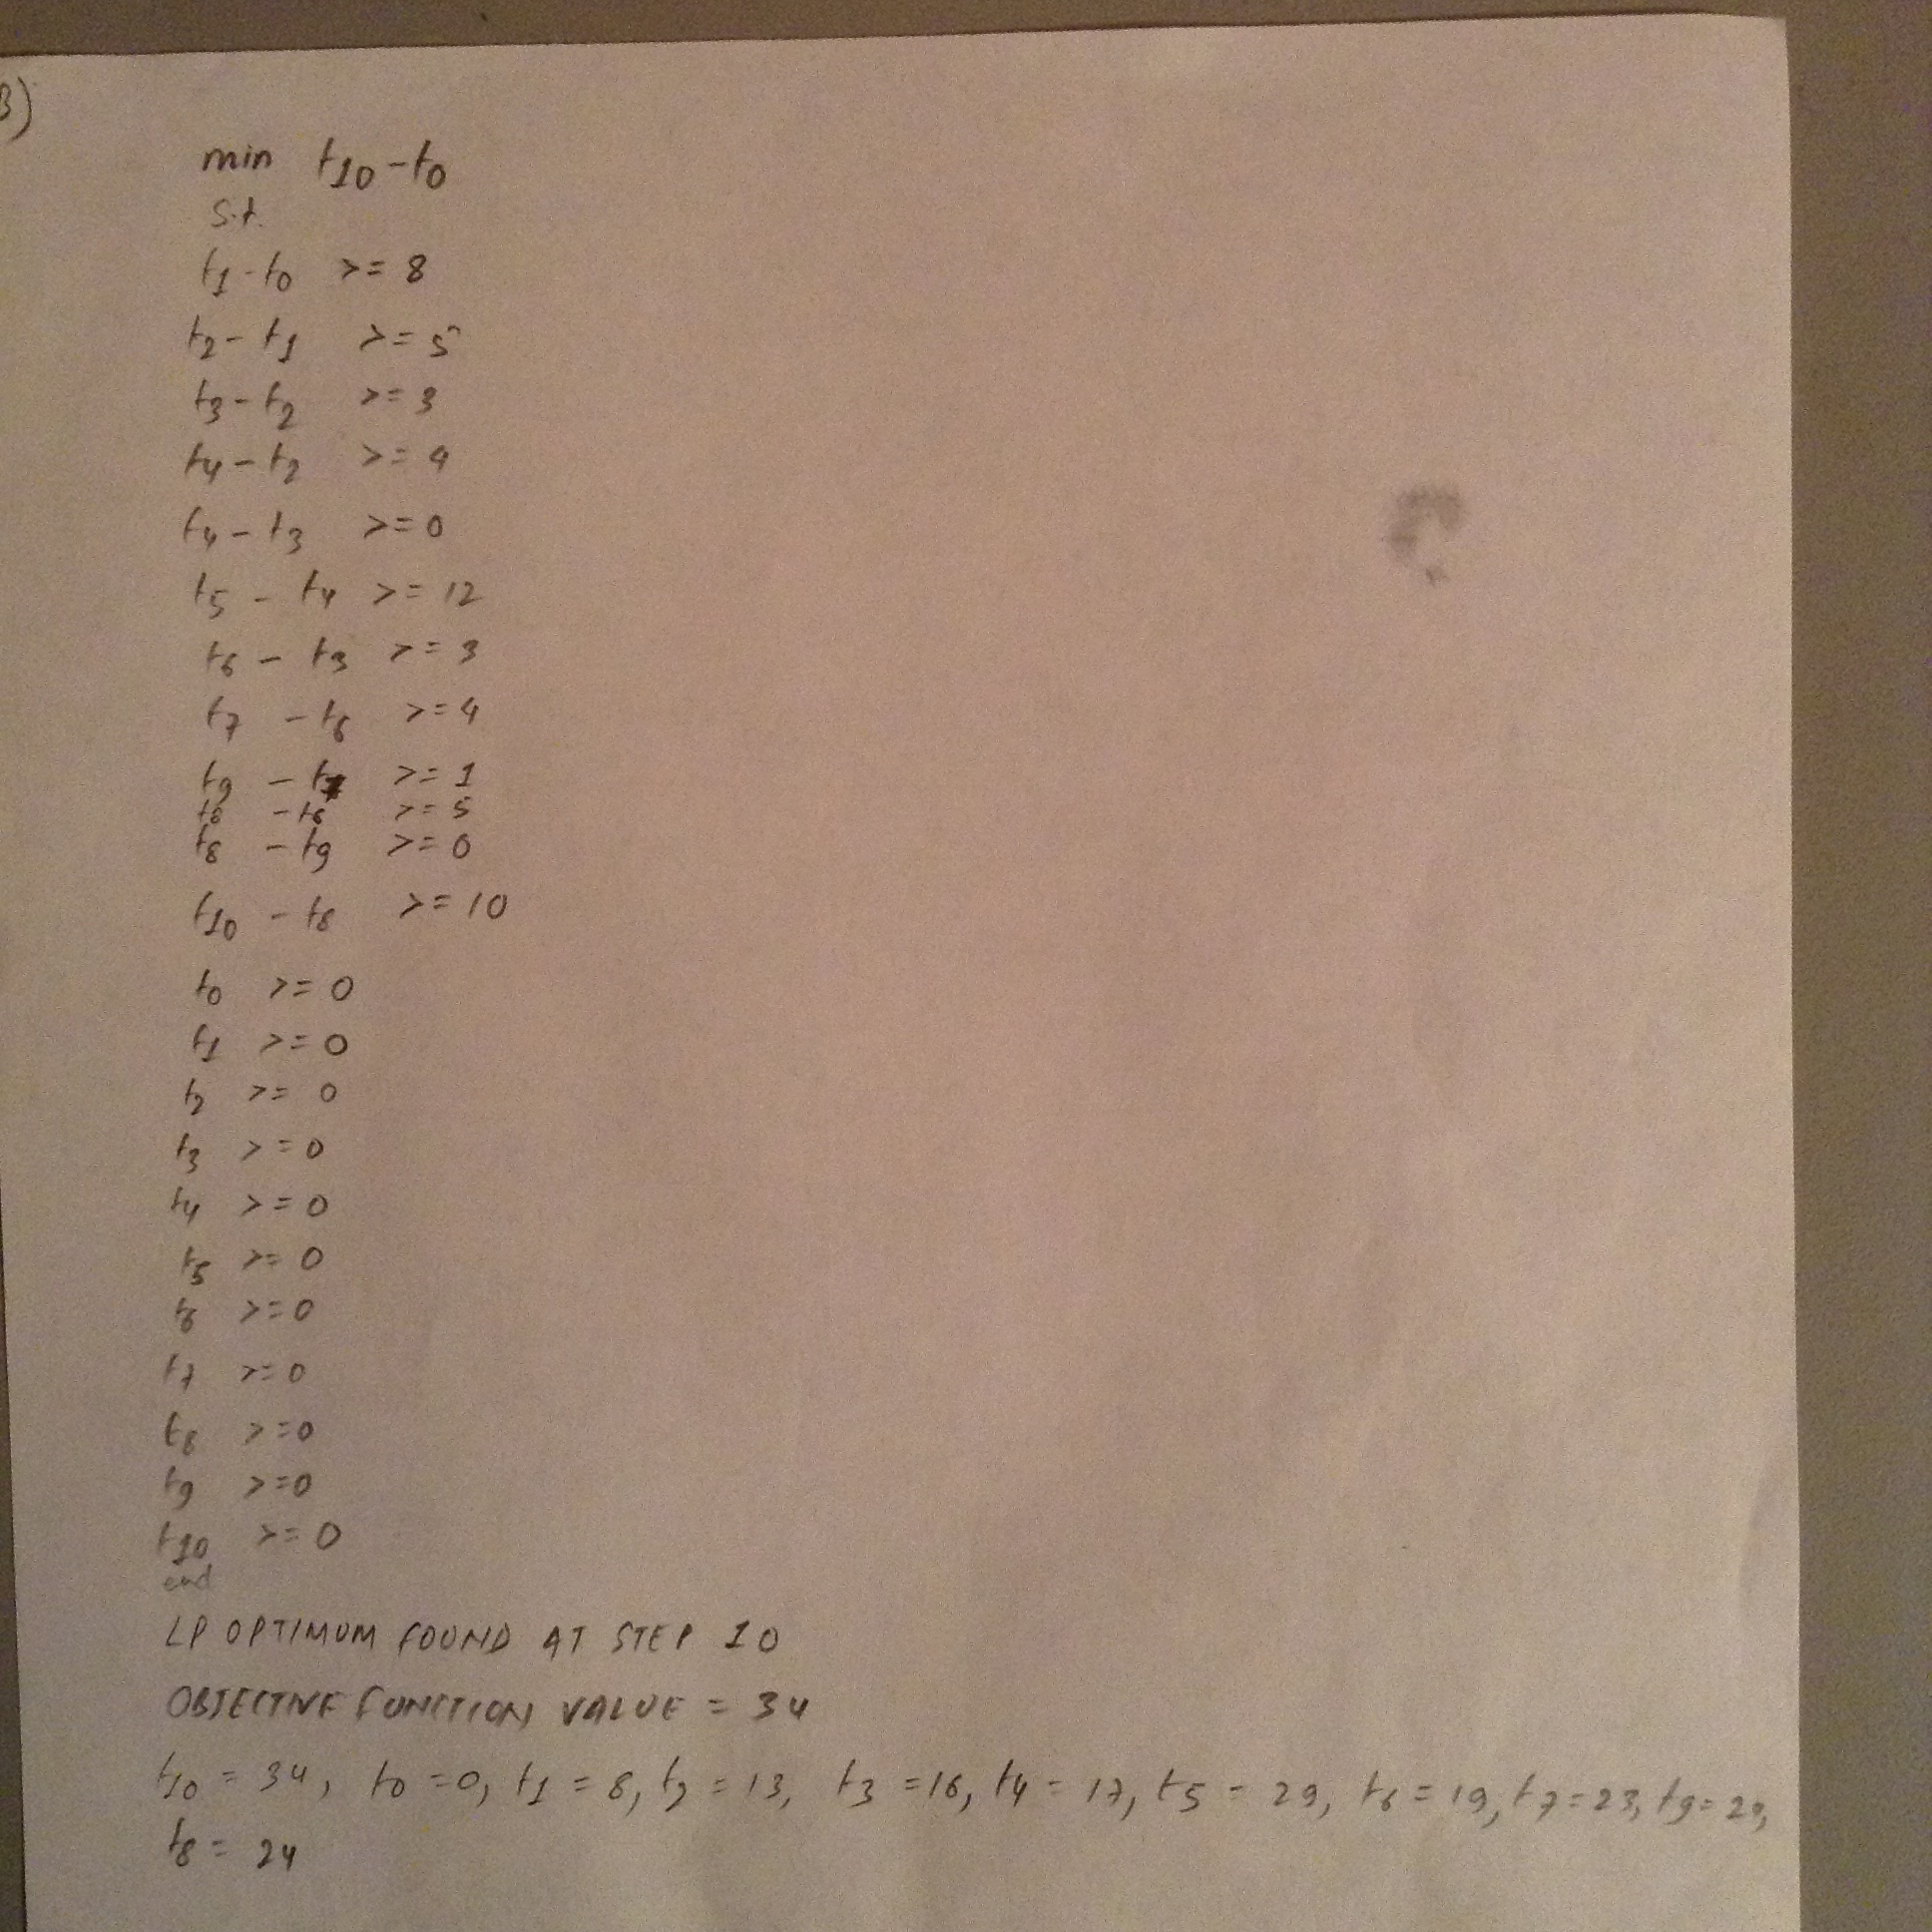 3)
min t10 - t0
s.t.
t1 - t0 >= 8
t2 - t1 >= 5
t3 - t2 >= 3
t4 - t2 >= 4
t4 - t3 >= 0
t5 - t4 >= 12
t6 - t3 >= 3
t7 - t6 >= 4
t9 - t7 >= 1
t8 - t6 >= 5
t8 - t9 >= 0
t10 - t8 >= 10
t0 >= 0
t1 >= 0
t2 >= 0
t3 >= 0
t4 >= 0
t5 >= 0
t6 >= 0
t7 >= 0
t8 >= 0
t9 >= 0
t10 >= 0
end
LP OPTIMUM FOUND AT STEP 10
OBJECTIVE FUNCTION VALUE = 34
t10 = 34, t0 = 0, t1 = 8, t2 = 13, t3 = 16, t4 = 17, t5 = 29, t6 = 19, t7 = 23, t9 =
t8 = 24